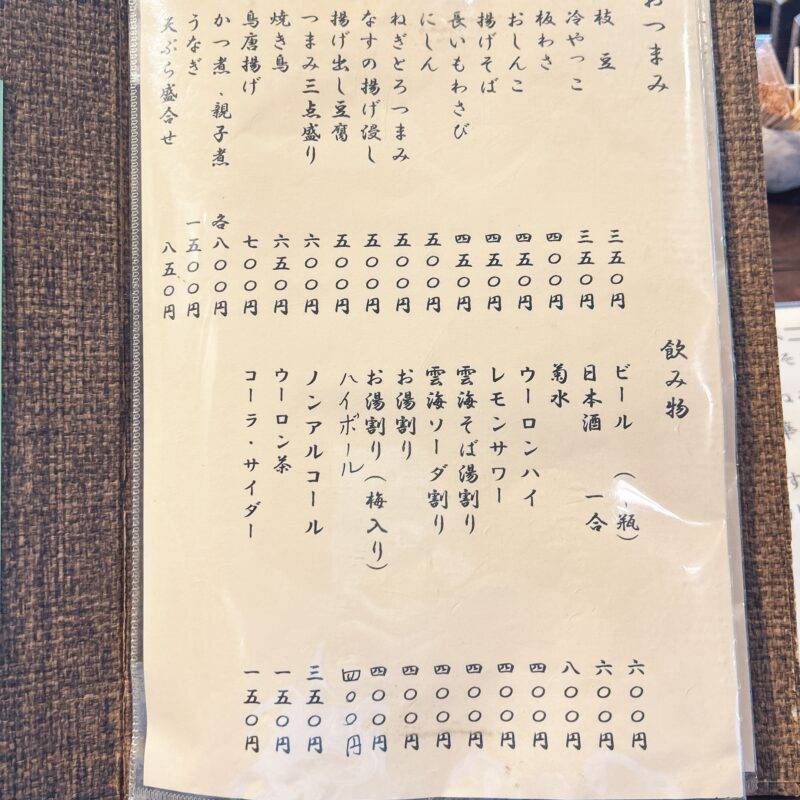 おつまみ
枝豆 三五〇円
冷やっこ 三五〇円
板わさ 四〇〇円
おしんこ 四五〇円
揚げそば 四五〇円
長いもわさび 四五〇円
にしん 五〇〇円
ねぎとろつまみ 五〇〇円
なすの揚げ浸し 五〇〇円
揚げ出し豆腐 五〇〇円
つまみ三点盛り 六〇〇円
焼き鳥 六五〇円
鳥唐揚げ 七〇〇円
かつ煮・親子煮 各八〇〇円
うなぎ 一五〇〇円
天ぷら盛合せ 八五〇円
飲み物
ビール（一瓶） 六〇〇円
日本酒 一合 六〇〇円
菊水 八〇〇円
ウーロンハイ 四〇〇円
レモンサワー 四〇〇円
雲海そば湯割り 四〇〇円
雲海ソーダ割り 四〇〇円
お湯割り 四〇〇円
お湯割り（梅入り） 四〇〇円
ハイボール 四〇〇円
ノンアルコール 三五〇円
ウーロン茶 一五〇円
コーラ・サイダー 一五〇円